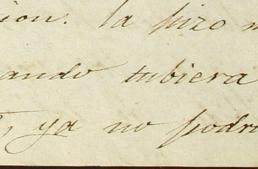 ion. la hizo
ando tubiera
ya no podr